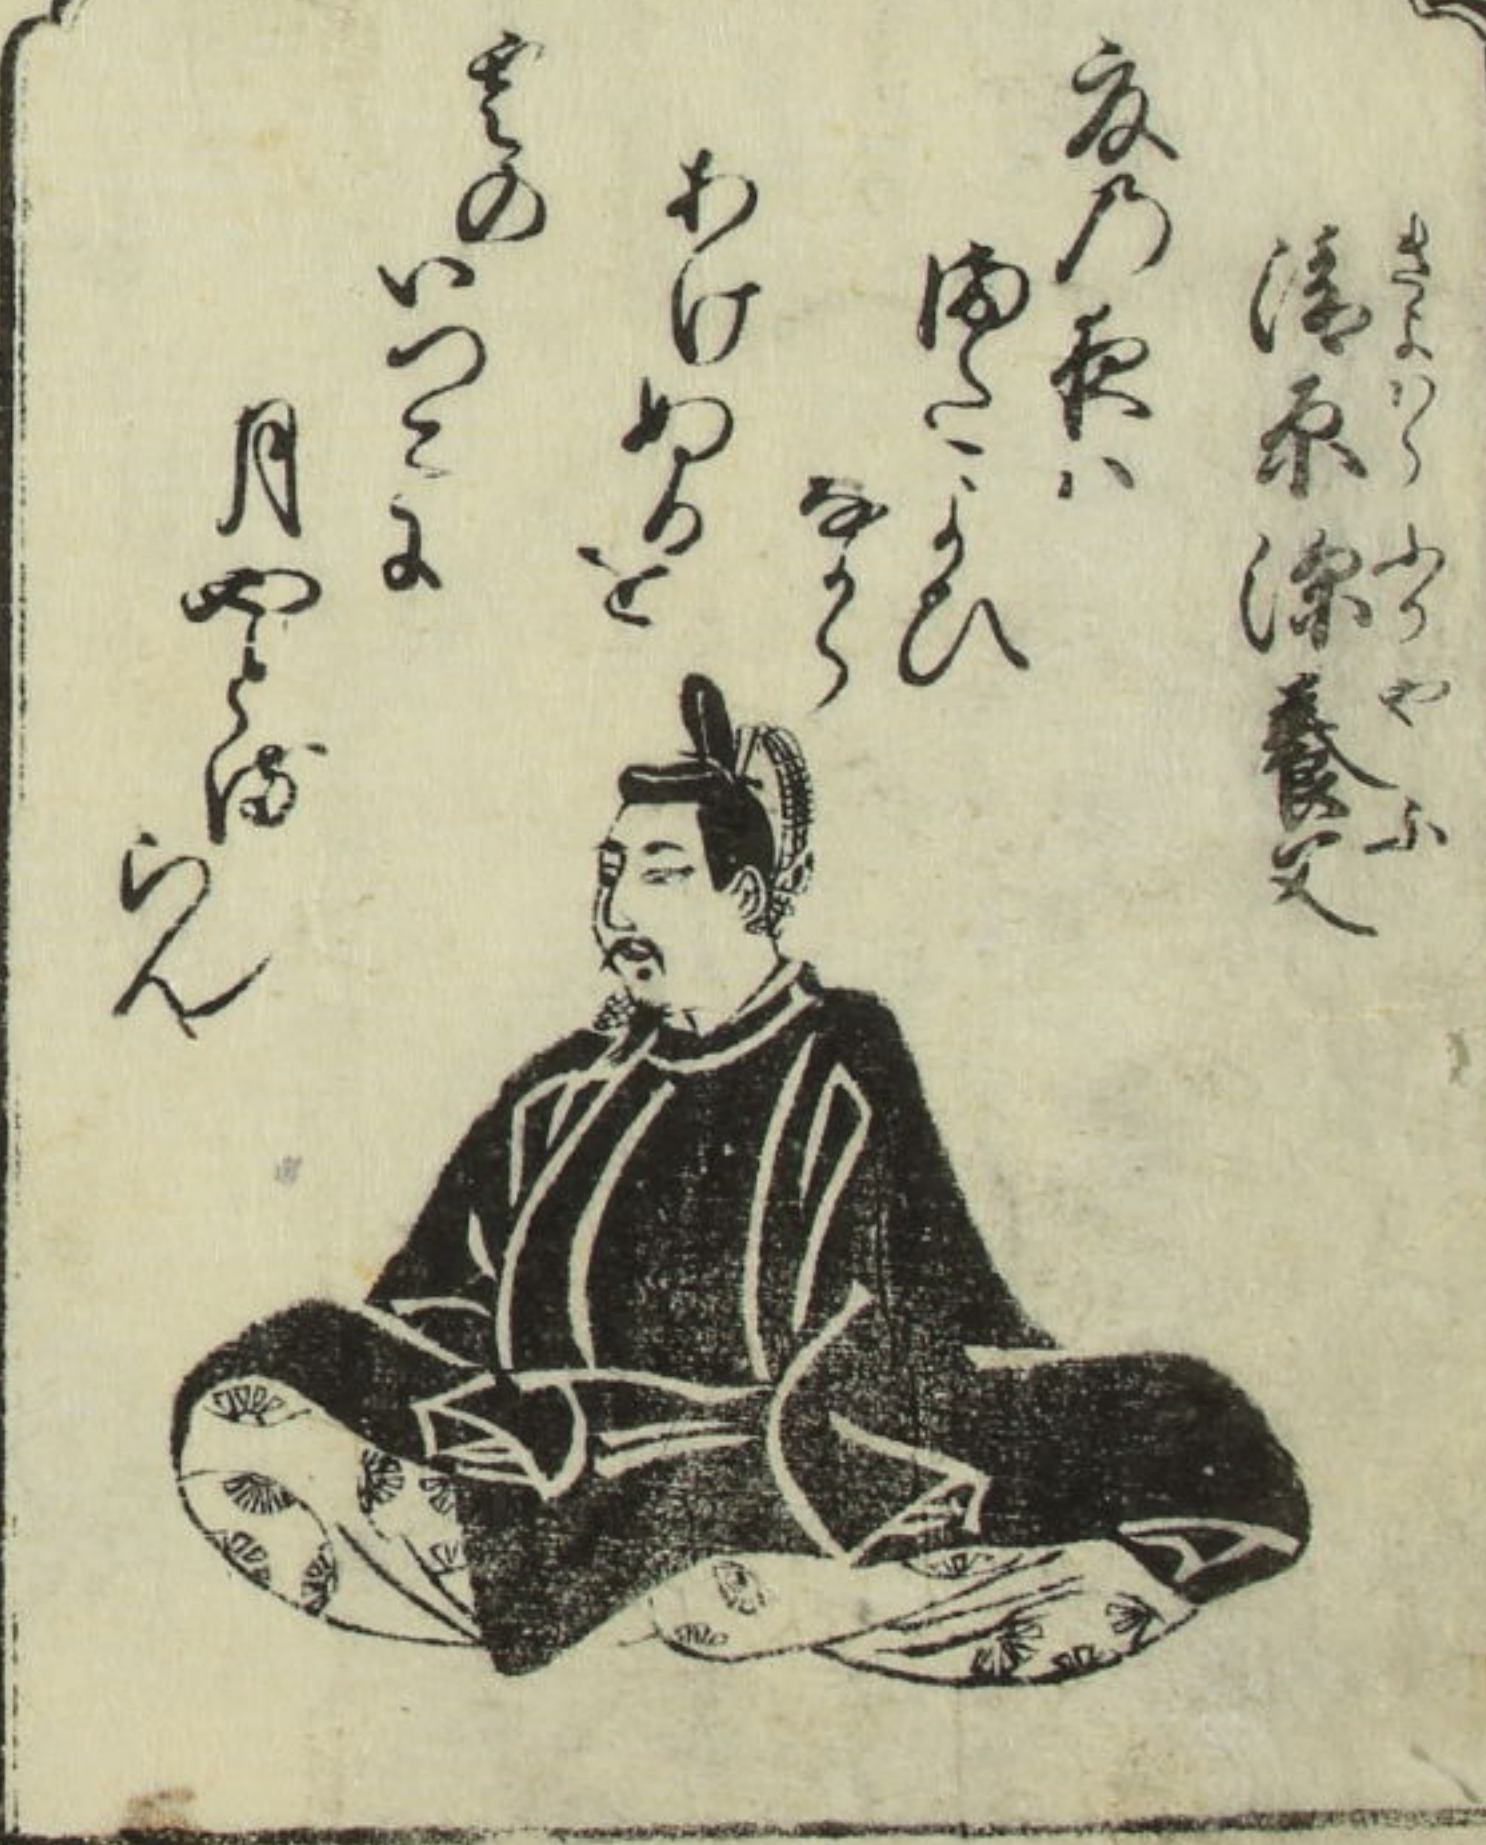 きよハら ふかやふ
清原深養父
夏乃夜ハ
満たよひ
なから
あけぬるを
雲の
いつこに
月やとる
らん